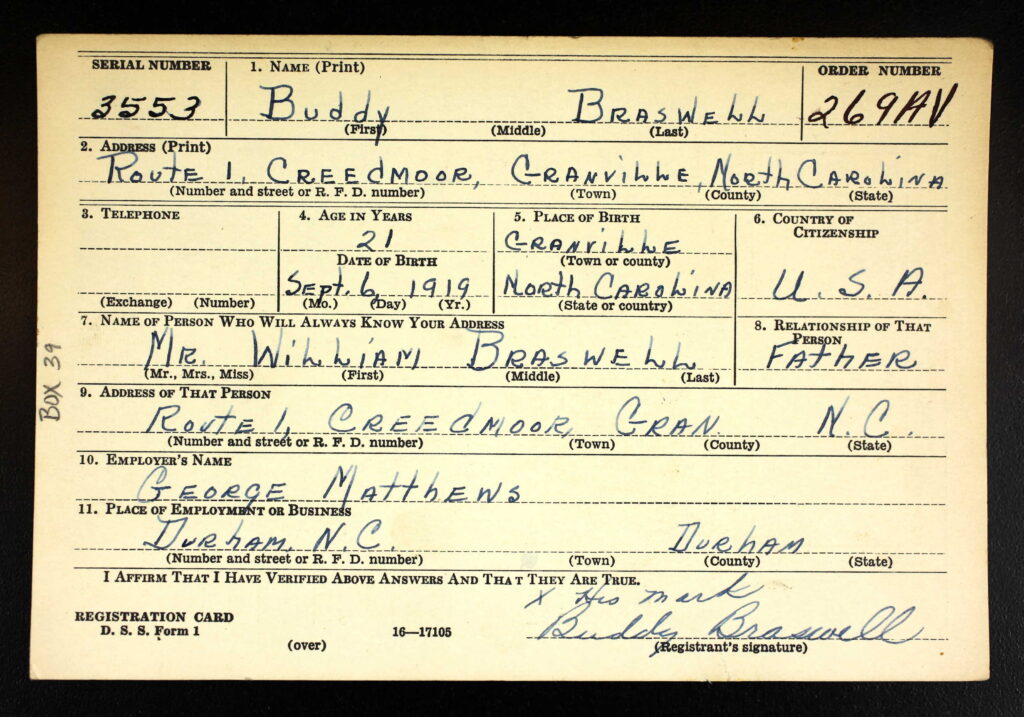 SERIAL NUMBER 1. NAME (Print) ORDER NUMBER
3553 Buddy BRASWELL 269AV
(First) (Middle) (Last)
2. ADDRESS (Print)
Route 1, CREEDMOOR, GRANVILLE, North CAROLINA
(Number and street or R. F. D. number) (Town) (County) (State)
3. TELEPHONE 4. AGE IN YEARS 5. PLACE OF BIRTH 6. COUNTRY OF CITIZENSHIP
21 GRANVILLE
DATE OF BIRTH (Town or county)
Sept. 6 1919 North CAROLINA U. S. A.
(Exchange) (Number) (Mo.) (Day) (Yr.) (State or country)
7. NAME OF PERSON WHO WILL ALWAYS KNOW YOUR ADDRESS 8. RELATIONSHIP OF THAT PERSON
MR. WILLIAM BRASWELL FATHER
(Mr., Mrs., Miss) (First) (Middle) (Last)
BOX 39
9. ADDRESS OF THAT PERSON
Route 1, CREEDMOOR GRAN N.C.
(Number and street or R. F. D. number) (Town) (County) (State)
10. EMPLOYER'S NAME
GEORGE MATTHEWS
11. PLACE OF EMPLOYMENT OR BUSINESS
DURHAM, N.C. DURHAM
(Number and street or R. F. D. number) (Town) (County) (State)
I AFFIRM THAT I HAVE VERIFIED ABOVE ANSWERS AND THAT THEY ARE TRUE.
x His mark
REGISTRATION CARD
D. S. S. Form 1 16—17105 Buddy Braswell
(over) (Registrant's signature)